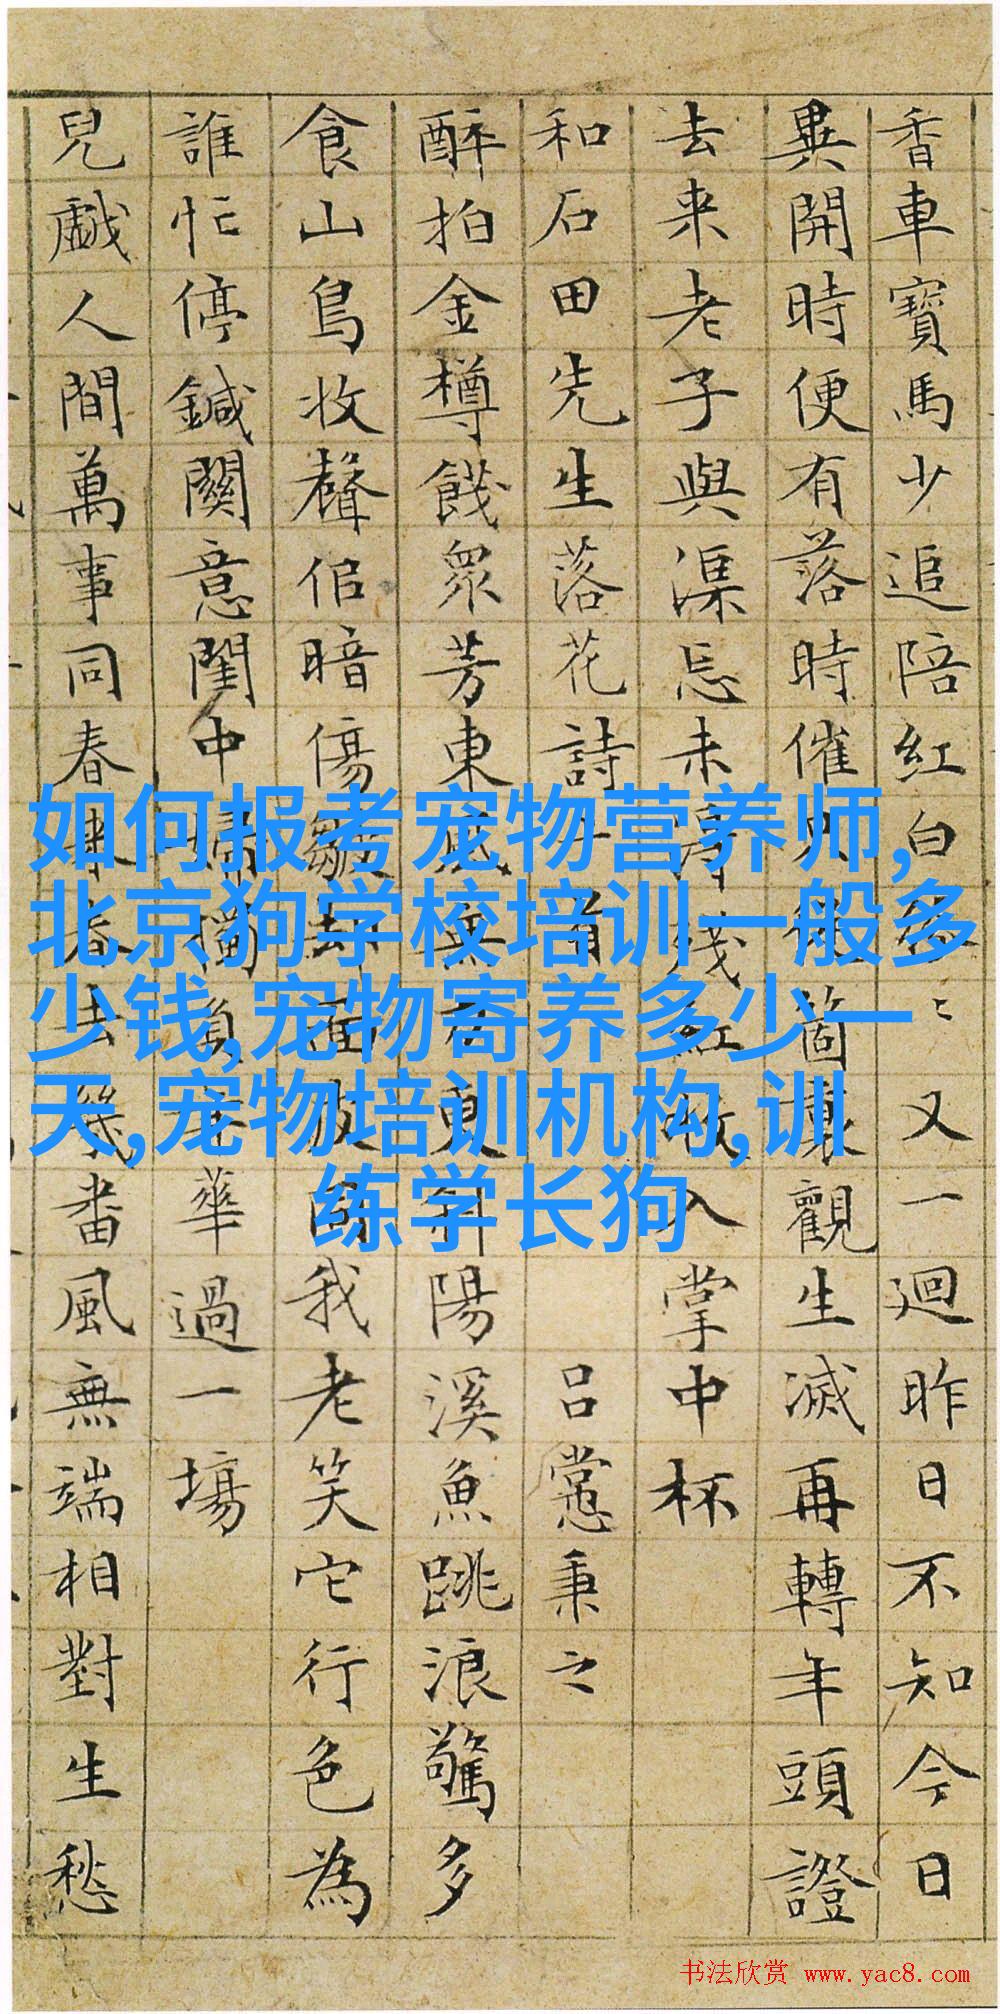 如何报考宠物营养师,
北京狗学校培训一般多
少钱,宠物寄养多少一
天,宠物培训机构,训
练学长狗
香車寶馬少追陪紅白〻又一迴昨日不知今日
異開時便有落時催箇裏觀生滅再轉年頭證
去来老子與渠忘未淂殘紅收入掌中杯
和石田先生落花詩十首 吕㦂秉之
醉拍金樽餞眾芳東風無更斜陽溪魚跳浪驚多
食山鳥收聲倍暗傷皺却面皮因我老笑它行色為
誰忙停鍼關意閨中婦獨華過一場
兒戲人間萬事同春来春去幾番風無端相對生愁
书法欣赏 www.yac8.com